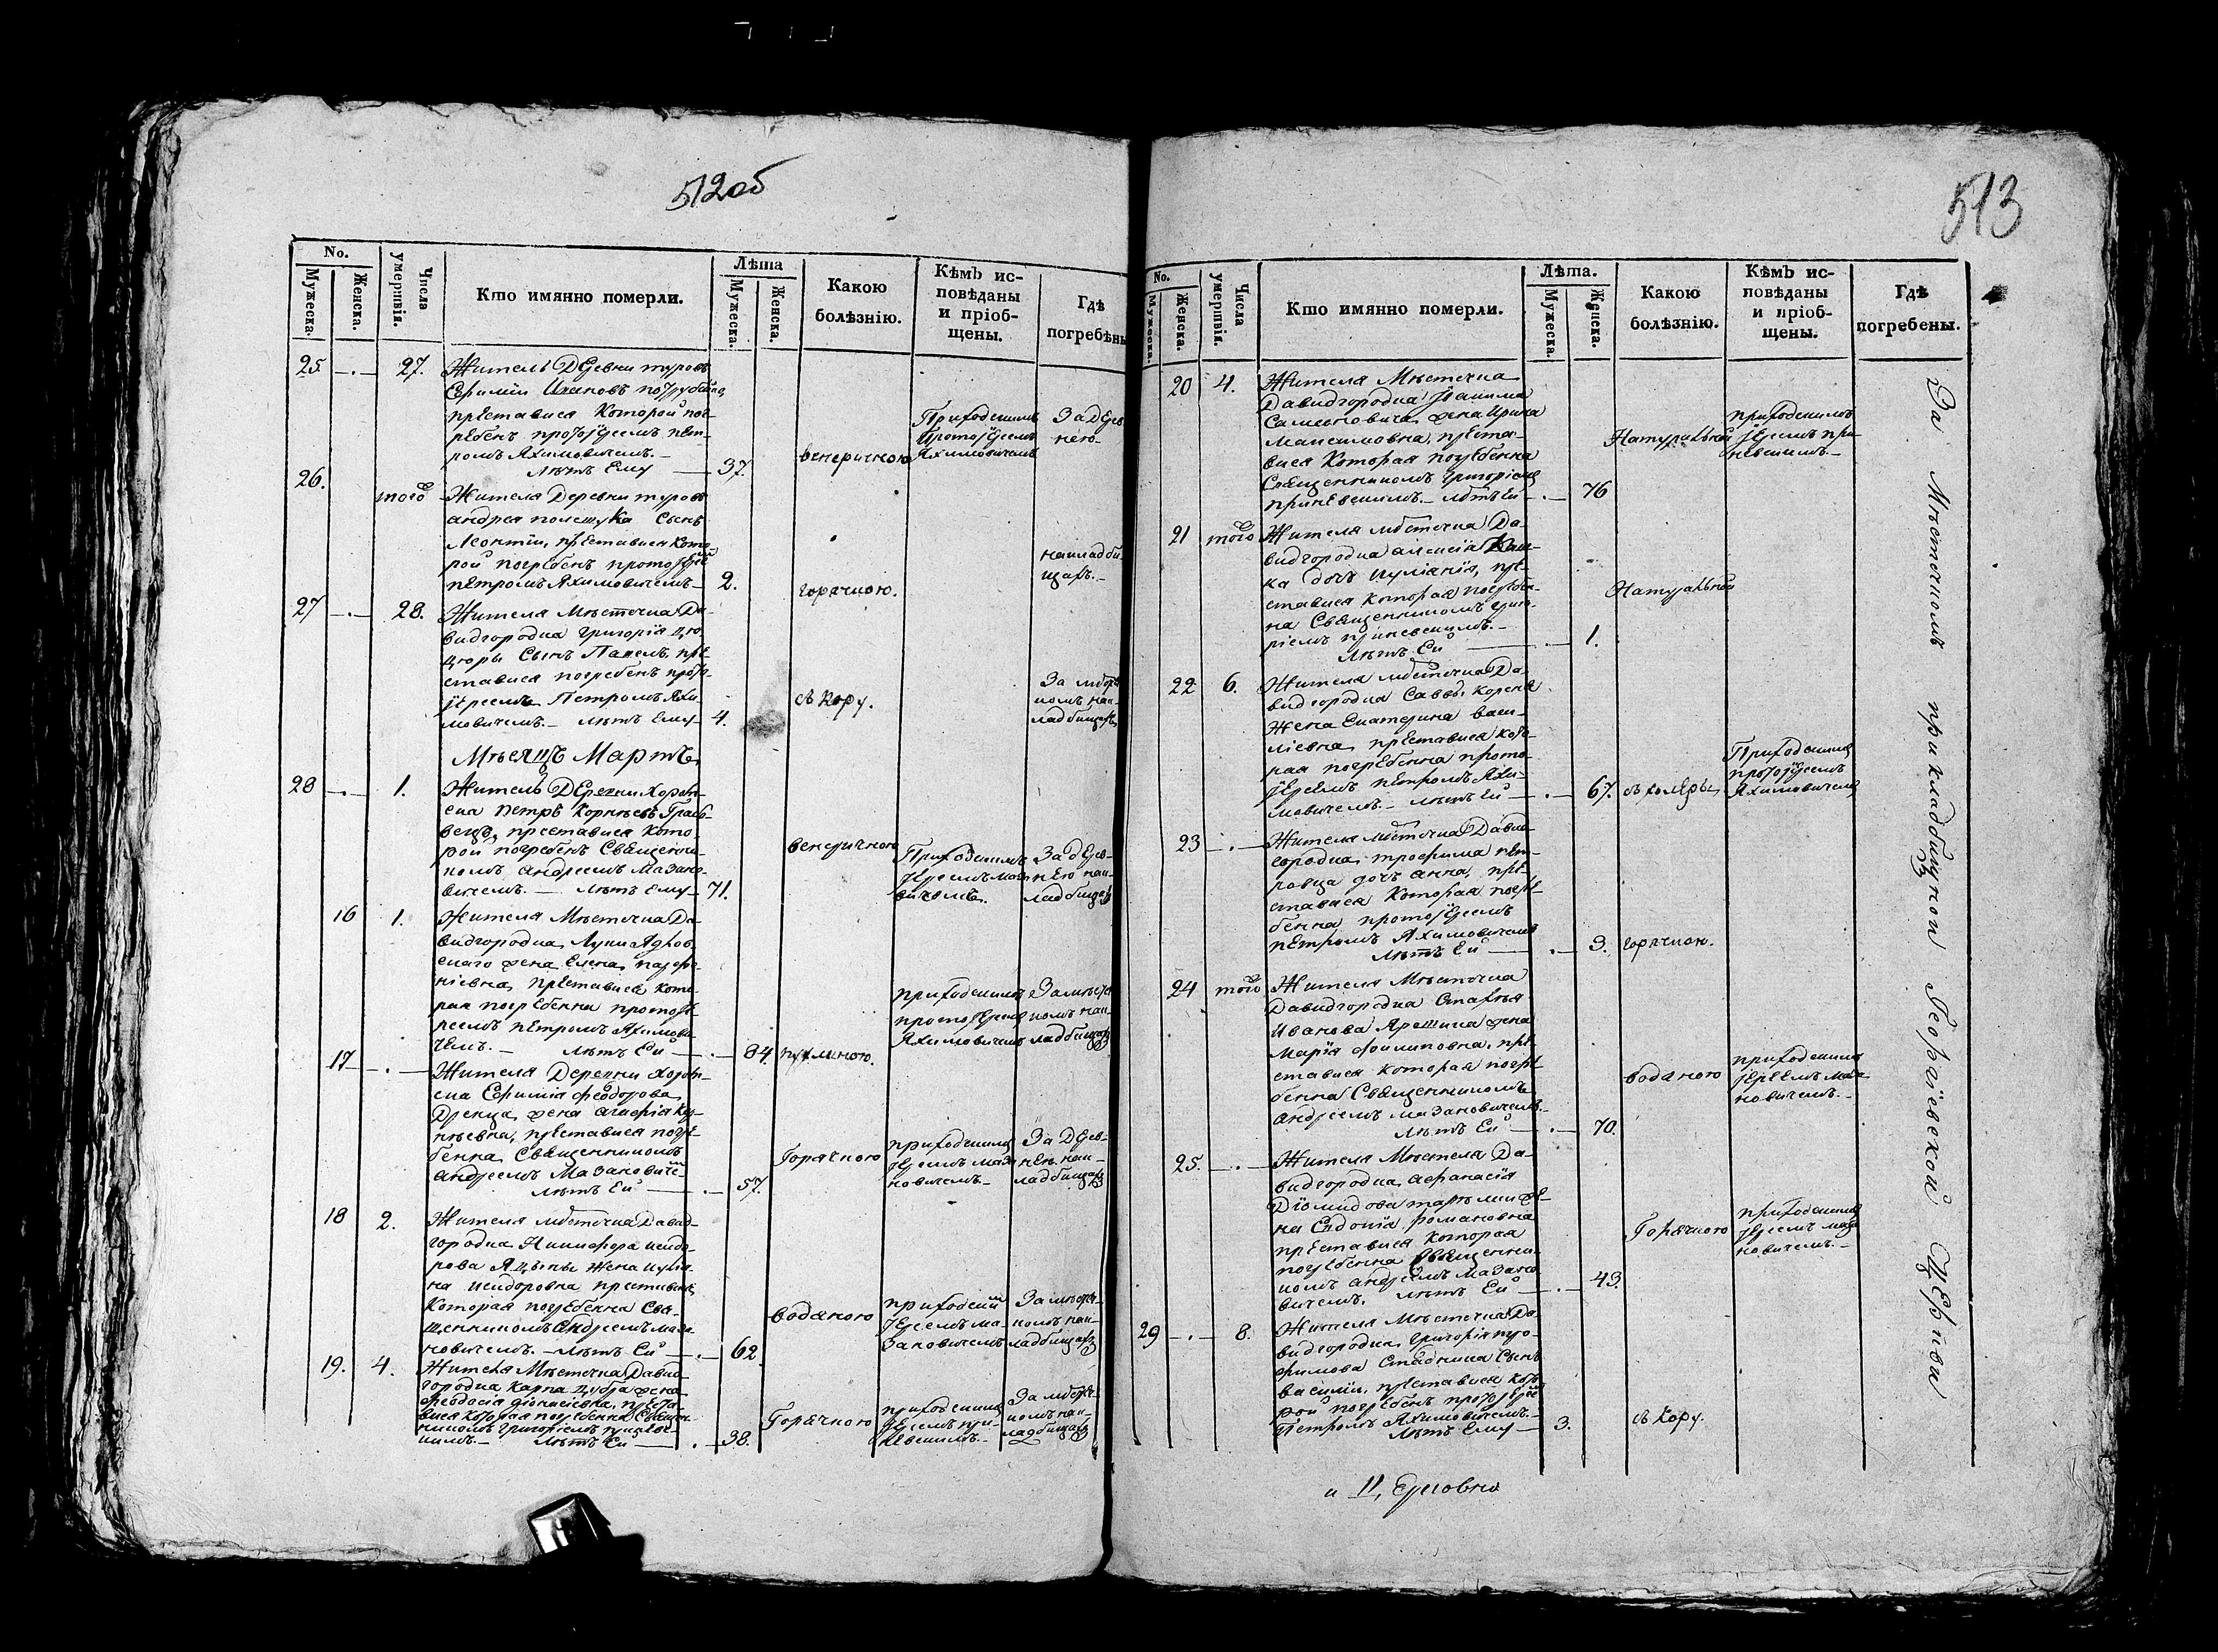 512об
No.
Мужеска.
Женска.
Числа умершвія.
Кто имянно померли.
Лѣта
Мужеска.
Женска.
Какою болѣзнію.
Кѣмъ исповѣданы и пріобщены.
Гдѣ погребѣны
25. 27. Житель деревни туровъ
преставися которой пог-
ребенъ протоіереемъ пет-
ромъ Яхимовичемъ.
Лѣтъ Ему 37.
венеричною
Приходскимъ
Протоіереемъ
Яхимовичемъ
За дерев
нею
26. того Жителя деревни туровъ
андрея полещука сынъ
Леонтій, преставися кото
рой погребенъ протоіереемъ
петромъ Яхимовичемъ 2.
горячкою.
накладби
щахъ.
27 28. Жителя Мѣстечка Да-
видгородка григорія
сынъ Павелъ, пре-
ставися погребенъ прото-
іереемъ Петромъ Яхи-
мовичемъ. лѣтъ Ему 4.
съ кору.
За мѣстеч
комъ нак-
ладбищахъ
Мѣсяцъ Мартъ
28 1. Житель Деревни Хорот-
ска Петръ Корнѣевъ
преставися кото-
рой погребенъ священни-
комъ андреемъ Мазано-
вичемъ. Лѣтъ ему 71.
венеричною
Приходскимъ
іереемъ Маза
новичемъ.
За дерев-
нею нак-
ладбищахъ
16 1. Жителя Мѣстечка Да-
видгородка Луки
жена Елена
преставися кото-
рая погребенна протоіе-
реемъ петромъ Яхимови-
чемъ. лѣтъ Ей 84
пухлиною.
приходскимъ
протоіереемъ
Яхимовичемъ
Замѣстеч
комъ нак-
ладбищахъ
17 Жителя Деревни Хорот-
ска Ефимія федорова
жена агафія
преставися погре-
бенна Священникомъ
андреемъ Мазановичемъ
лѣтъ Ей 57.
Горячкою
приходскимъ
іереемъ Маза
новичемъ
За дерев-
нею нак-
ладбищахъ
18 2. Жителя мѣстечка Давид-
городка Никифора исидо-
рова жена
исидоровна преставися
которая погребенна Свя-
щенникомъ Андреемъ маза-
новичемъ. лѣтъ Ей 62.
водяною
приходскимъ
іереемъ ма-
зановичемъ
За мѣстеч-
комъ нак-
ладбищахъ
19. 4. Жителя Мѣстечка Давид-
городка Карпа жена
феодосія преста-
вися которая погребенна Священ-
никомъ григоріемъ приневс-
кимъ. лѣтъ Ей 38.
Горячкою
приходскимъ
іереемъ при-
невскимъ
За мѣстеч-
комъ нак-
ладбищахъ
513
No.
Мужеска.
Женска.
Числа умершвія.
Кто имянно померли.
Лѣта.
Мужеска.
Женска.
Какою болѣзнію.
Кѣмъ исповѣданы и пріобщены.
Гдѣ погребены.
20 4. Жителя Мѣстечка
Давидгородка
Самсоновича жена Ирина
Максимовна, преста-
вися Которая погребенна
Священникомъ григоріемъ
приневскимъ. лѣтъ Ей 76
Натуральной
приходскимъ
іереемъ при
невскимъ
21 того Жителя мѣстечка Да-
видгородка алексія
дочь пре-
ставися которая погребен-
на Священникомъ григо-
ріемъ приневскимъ.
Лѣтъ Ей 1.
Натуральной
22 6. Жителя мѣстечка Да-
видгородка Саввы
Жена Екатерина васи-
ліевна преставися кото-
рая погребенна прото-
іереемъ петромъ Яхи-
мовичемъ. лѣтъ Ей 67.
съ холеры
Приходскимъ
протоіереемъ
Яхимовичемъ
23 Жителя мѣстечка Давид-
городка трофима пет-
ровца дочь анна, пре-
ставися Которая погре-
бенна протоіереемъ
петромъ Яхимовичемъ
Лѣтъ Ей 3.
горячкою.
24 того Жителя Мѣстечка
Давидгородка
Иванова жена
Марія филиповна, пре-
ставися которая погре-
бенна Священникомъ
андреемъ мазановичемъ.
лѣтъ Ей 70.
водяною
приходскимъ
іереемъ маза
новичемъ.
25. Жителя Мѣстечка Да-
видгородка афанасія
же-
на Евдокія романовна
преставися которая
погребенна Священни-
комъ андреемъ Мазано
вичемъ. лѣтъ Ей 43.
Горячкою
приходскимъ
іереемъ маза
новичемъ.
29 8. Жителя Мѣстечка Да-
видгородка, григорія тро-
фимова Стадника Сынъ
василій, преставися кото-
рой погребенъ протоіереемъ
Петромъ Яхимовичемъ.
Лѣтъ Ему 3.
съ кору.
За Мѣстечкомъ прикладбищной Георгіевской Церкви